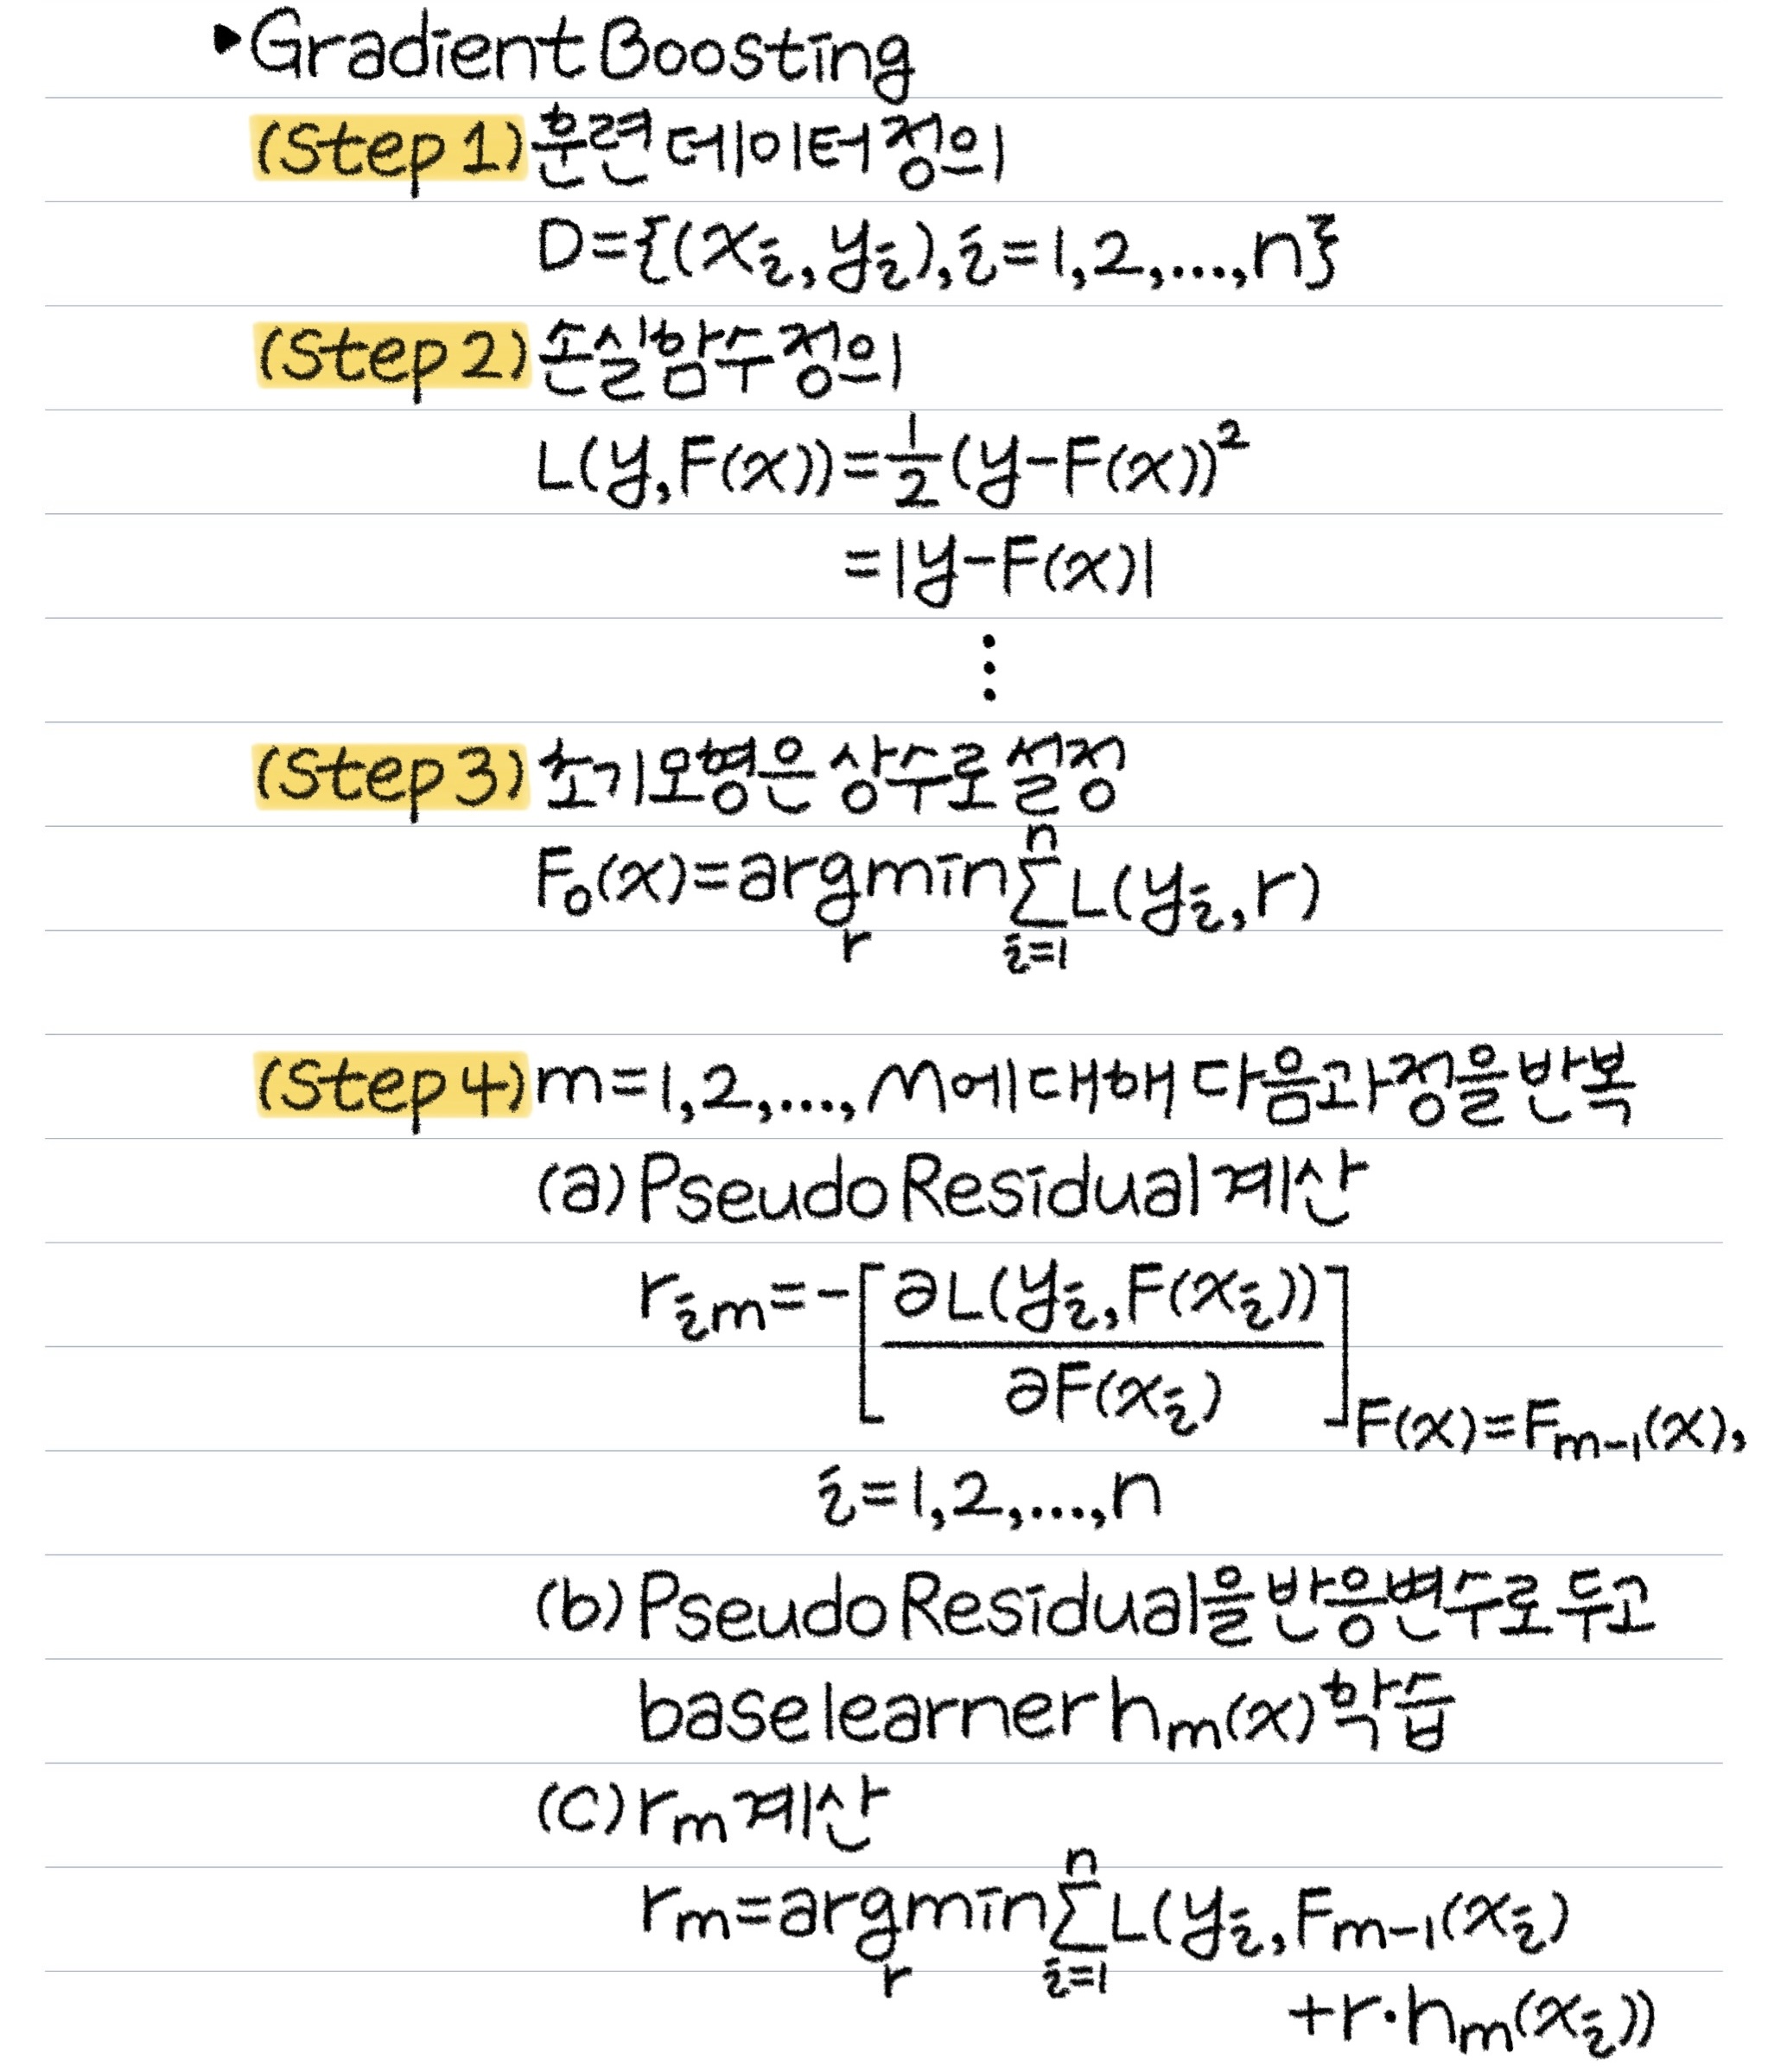 ▶Gradient Boosting
(Step 1) 훈련 데이터 정의
D={(x_i, y_i), i=1,2,...,n}
(Step 2) 손실함수 정의
L(y, F(x))=1/2(y-F(x))²
=|y-F(x)|
⋮
(Step 3) 초기모형은 상수로 설정
F₀(x)=argmin_r Σ_{i=1}^{n} L(y_i, r)
(Step 4) m=1,2,...,M에 대해 다음과정을 반복
(a) Pseudo Residual 계산
r_{im}=-[∂L(y_i, F(x_i))/∂F(x_i)]_{F(x)=F_{m-1}(x)},
i=1,2,...,n
(b) Pseudo Residual을 반응변수로 두고
base learner h_m(x) 학습
(c) r_m 계산
r_m=argmin_r Σ_{i=1}^{n} L(y_i, F_{m-1}(x_i)
+r·h_m(x_i))